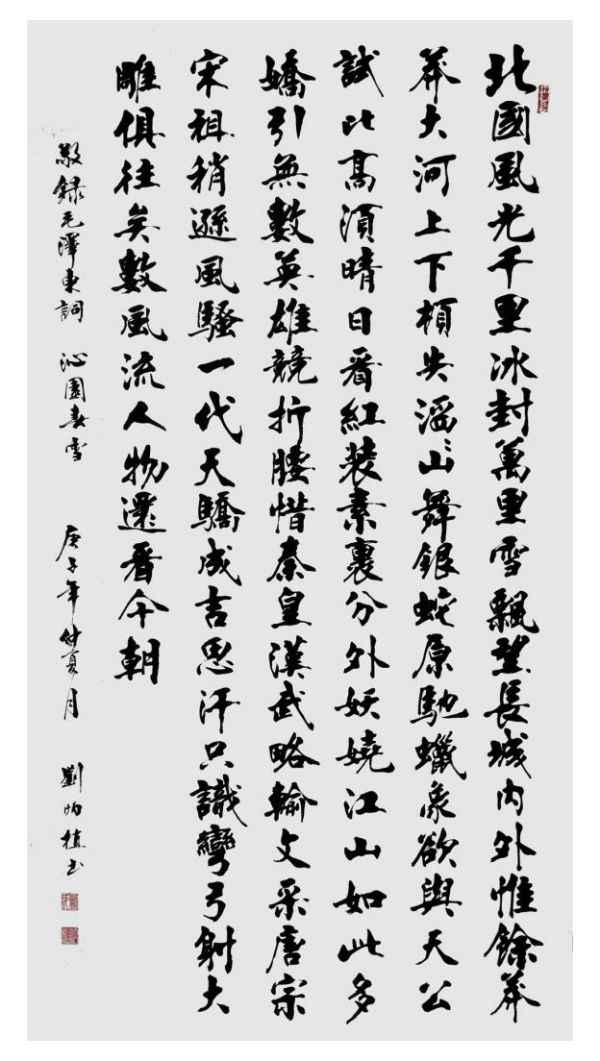 北國風光千里冰封萬里雪飄望長城內外惟餘莽
莽大河上下頓失滔〻山舞銀蛇原馳蠟象欲與天公
試比高須晴日看紅裝素裹分外妖嬈江山如此多
嬌引無數英雄競折腰惜秦皇漢武略輸文采唐宗
宋祖稍遜風騷一代天驕成吉思汗只識彎弓射大
雕俱往矣數風流人物還看今朝
敬録毛澤東詞 沁園春雪 庚子年仲夏月 劉炳植书